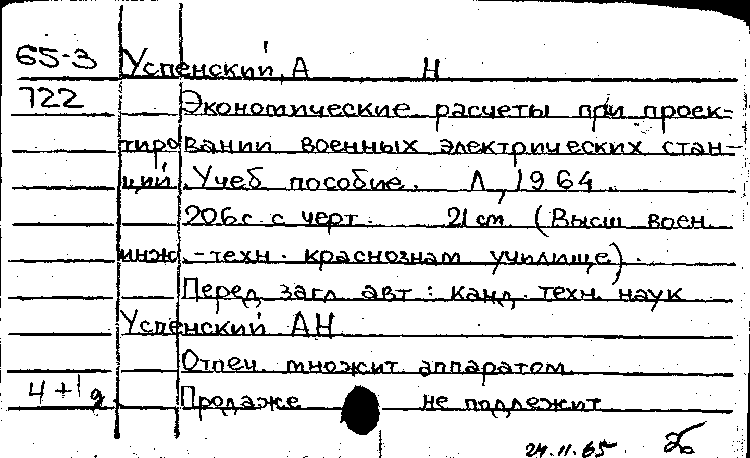 65-3 Успенский, А Н
722 Экономические расчеты при проек-
тировании военных электрических стан-
ций. Учеб пособие. Л, 1964.
206с с черт. 21 см (Высш воен.
инж.-техн. краснознам училище).
Перед загл авт: канд. техн. наук
Успенский АН
Отпеч. множит аппаратом
4+1 Продаже не подлежит
24.11.65